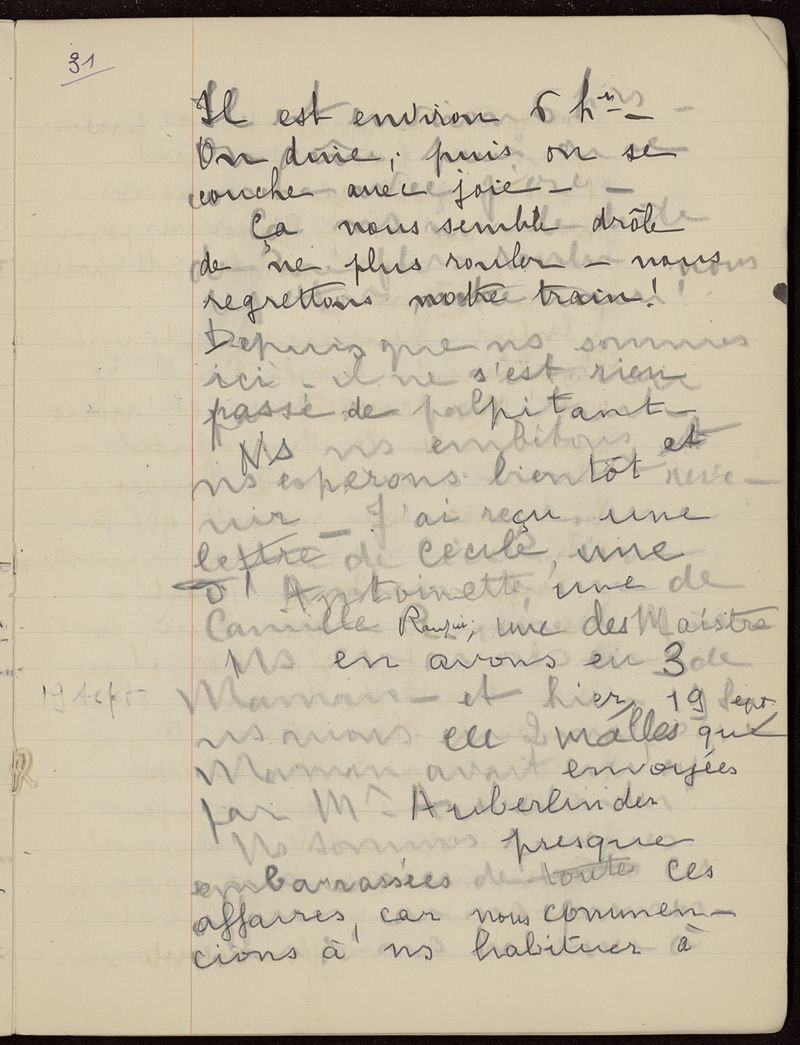 31
Il est environ 6 hres –
On dine, puis on se
couche avec joie – –
Ça nous semble drôle
de ne plus rouler – nous
regrettons notre train !
Depuis que ns sommes
ici – il ne s'est rien
passé de palpitant –
Ns ns embêtons et
ns esperons bientôt reve–
nir – J'ai reçu une
lettre de Cecile, une
d'Antoinette, une de
Camille une des Maistre
Ns en avons eu 3 de
19 Sept
Maman – et hier, 19 Sept.
ns avons eu 2 malles que
Maman avait envoyées
par Mr Auberlinder
Ns sommes presque
embarrassées de toute ces
affaires, car nous commen–
cions à ns habituer à